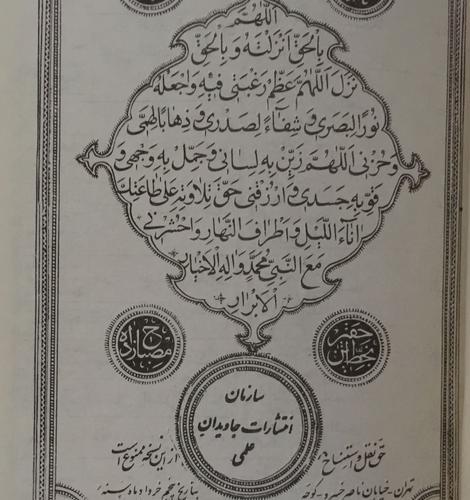 اللهم
بالحق انزلته وبالحق
نزل اللهم عظم رغبتی فیه واجعله
نورا لبصری وشفاء لصدری وذهابا لهمی
وحزنی اللهم زین به لسانی وجمل به وجهی و
قو به جسدی وارزقنی حق تلاوته علی طاعتک
آناء اللیل واطراف النهار واحشرنی
مع النبی محمد واله الاخیار
الابرار
سازمان
انتشارات جاویدان
علمی
حق نقل و استنساخ
از این نسخه ممنوع است
تهران - خیابان ناصر خسرو - کوچه
بتاریخ پنجم خرداد ماه